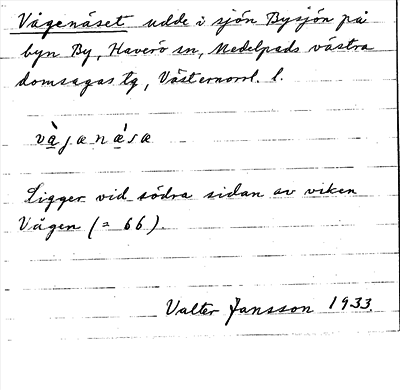 Vågenäset udde i sjön Bysjön på
byn By, Haverö sn, Medelpads västra
domsagas tg, Västernorrl. l.
Ligger vid södra sidan av viken
Vågen (= 66).
Valter Jansson 1933.